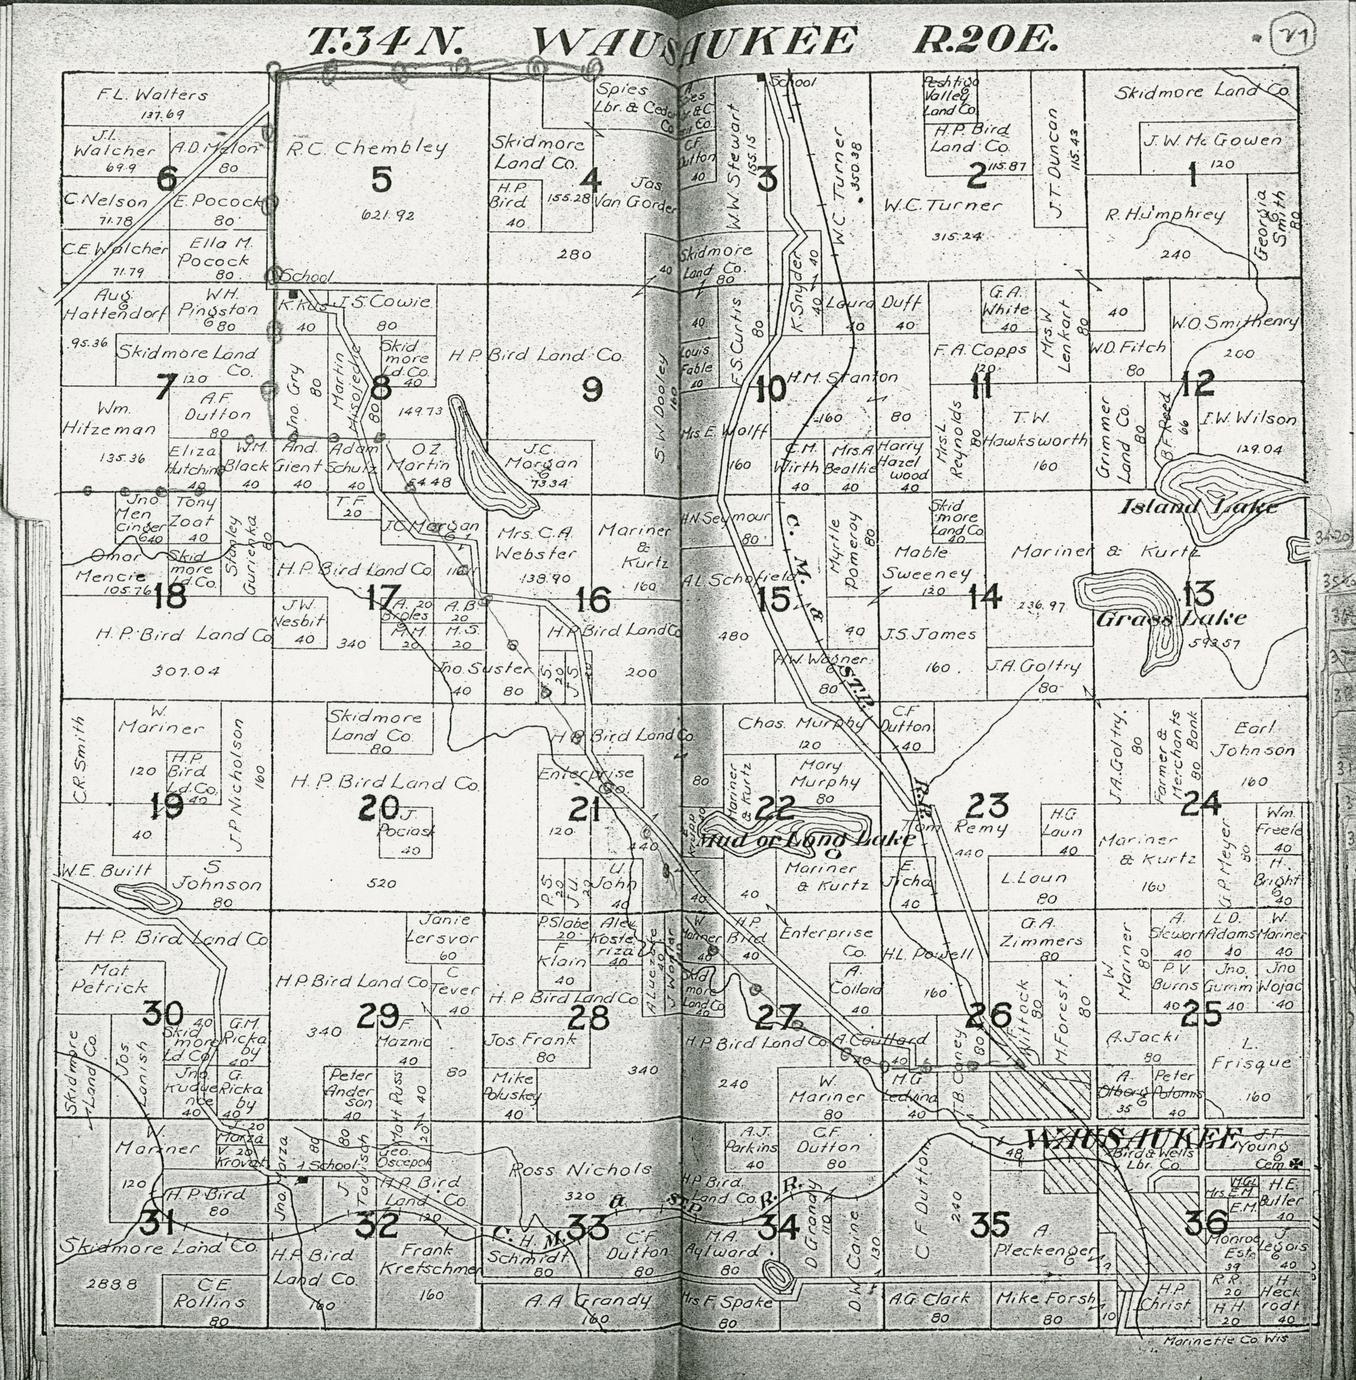 T.34 N. WAUSAUKEE R.20E.
21
F.L. Walters
137.69
J.I.
Walcher
69.9
A.D. Melon
80
6
C. Nelson
71.78
E. Pocock
80
C.E. Walcher
71.79
Ella M.
Pocock
80
R.C. Chembley
5
621.92
School
Skidmore
Land Co.
Spies
Lbr. & Cedar
Co.
4
H.P.
Bird
40
155.28
Jas
Van Gorder
280
40
C.F.
Dutton
40
W.W. Stewart
155.15
School
3
W.C. Turner
350.38
Skidmore
Land Co.
80
K. Snyder
40
40
Peshtigo
Valley
Land Co.
H.P. Bird
Land Co.
115.87
2
J.T. Duncan
115.43
W.C. Turner
315.24
Skidmore Land Co.
J.W. McGowen
120
1
R. Humphrey
240
Georgia
Smith
80
Aug.
Hattendorf
95.36
W.H.
Pingston
80
Skidmore Land
Co.
120
7
Wm.
Hitzeman
135.36
A.F.
Dutton
80
Eliza
Hutchins
40
W.M.
Black
40
J.S. Cowie
80
40
Jno. Gry
80
Martin
80
Skid
more
Ld. Co.
40
8
149.73
And.
Gient
40
Adam
Schultz
40
O.Z.
Martin
54.48
H.P. Bird Land Co.
9
J.C.
Morgan
73.34
S.W. Dooley
160
40
Louis
Fable
40
F.S. Curtis
80
Laura Duff
40
40
10
H.M. Stanton
160
80
Mrs. E. Wolff
160
C.M.
Wirth
40
Mrs. A.
Beattie
40
Harry
Hazel
wood
40
G.A.
White
40
Mrs. W.
Lenkart
80
F.A. Copps
120
11
Mrs. L.
Reynolds
80
T.W.
Hawksworth
160
40
W.D. Fitch
80
W.O. Smithenry
200
12
Grimmer
Land Co.
80
B.F. Reed
66
I.W. Wilson
129.04
Island Lake
Jno
Men
cinger
40
Tony
Zoat
40
Omar
Mencie
105.76
Skid
more
Ld. Co.
Stanley
Gurienka
80
18
H.P. Bird Land Co
307.04
T.F.
20
J.C. Morgan
H.P. Bird Land Co
17
J.W.
Nesbit
40
340
A.
Broles
20
A.B.
20
M.M.
20
M.S.
20
Jno. Suster
40
80
Mrs. C.A.
Webster
138.90
Mariner
&
Kurtz
160
16
H.P. Bird Land Co
200
J.S.
20
H.N. Seymour
80
A.L. Schofield
15
480
Myrtle
Pomeroy
80
40
A.W. Wagner
80
C. M. & ST. P. R.R.
Skid
more
Land Co.
40
Mable
Sweeney
120
14
J.S. James
160
236.97
J.A. Goltry
80
Mariner & Kurtz
13
Grass Lake
593.57
C.R. Smith
W.
Mariner
120
H.P.
Bird
Ld. Co.
40
J.P. Nicholson
160
19
40
W.E. Built
S
Johnson
80
Skidmore
Land Co.
80
H.P. Bird Land Co
20
J.
Pociask
40
520
H.P. Bird Land Co
Enterprise
Co.
21
120
440
P.S.
20
J.U.
20
U.
John
40
Chas. Murphy
120
C.F.
Dutton
40
80
Mariner
& Kurtz
Mary
Murphy
80
22
Mud or Long Lake
Mariner
& Kurtz
40
Tom Remy
440
23
H.G.
Laun
40
E.
Jicha
40
L. Laun
80
J.A. Goltry.
80
Farmer &
Merchants
Bank
80
Earl
Johnson
160
24
Mariner
& Kurtz
160
G.P. Meyer
80
Wm.
Freele
40
H.
Bright
40
H.P. Bird Land Co
Mat
Petrick
30
Skidmore
Land Co.
Jos.
Lanish
40
Skid
more
Ld Co
G.M.
Ricka
by
40
Jno.
40
G.
Ricka
by
40
Janie
Lersvor
60
H.P. Bird Land Co
C
Tever
40
340
29
F.
Maznic
40
80
Peter
Ander
son
40
Mat Russ
40
P. Slabe
20
Alex
Koste
riza
40
F.
Klain
40
H.P. Bird Land Co
28
Jos. Frank
80
Mike
Poluskey
40
340
W.
Mariner
40
H.P.
Bird
40
Skid
more
Land Co
40
Enterprise
Co.
A.
Collard
40
27
H.P. Bird Land Co
A. Coullard
240
W.
Mariner
80
H.L. Powell
160
G.A.
Zimmers
80
26
M. Forest
80
M.G.
Ledvina
40
T.B. Caney
80
W.
Mariner
80
A.
Stewart
40
L.D.
Adams
40
W.
Mariner
40
P.V.
Burns
40
Jno.
Gurim
40
Jno
Wojac
40
25
A. Jacki
80
L.
Frisque
160
A.
Otberg
35
Peter
Polomis
40
W.
Mariner
120
H.P. Bird
80
31
Skidmore Land Co.
288.8
C.E.
Rollins
80
Jno. Marza
80
School
Geo.
Oscepok
H.P. Bird
Land Co.
120
32
H.P. Bird
Land Co.
160
Frank
Kretschmer
160
Ross Nichols
320
C. M. & ST.P. R.R.
33
H.
Schmidt
80
C.F.
Dutton
80
A.A. Grandy
160
A.J.
Parkins
40
C.F.
Dutton
80
H.P. Bird
Land Co.
34
M.A.
Aylward
80
D. Grandy
110
D.W. Caine
130
Mrs. F. Spake
80
WAUSAUKEE
48
C.F. Dutton
240
35
A.
Pleckenger
A.G. Clark
80
Mike Forsh
80
10
Bird & Wells
Lbr. Co.
J.T.
Young
Cem
H.E.
Butler
40
36
Monroe
Est.
39
J.
Legois
40
H.P.
Christ
R.R.
20
H.H.
20
H.
Heck
rodt
40
Marinette Co. Wis